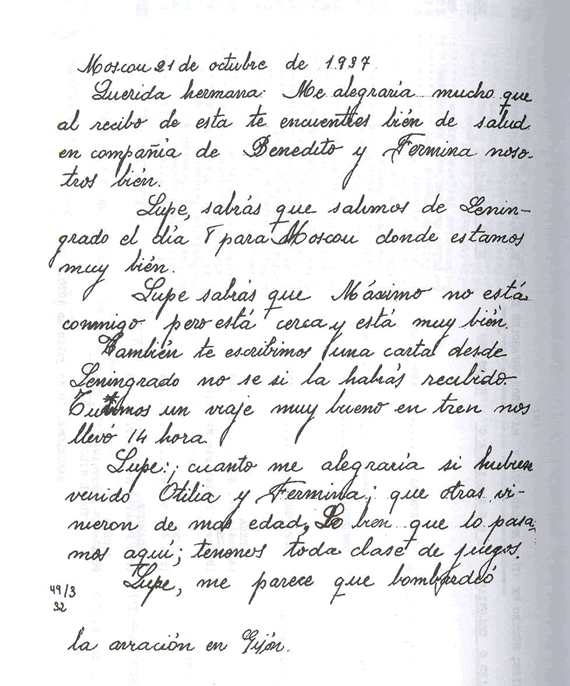 Moscou 21 de octubre de 1.937
Querida hermana: Me alegraría mucho que
al recibo de esta te encuentres bién de salud
en compañia de Benedito y Fermina noso-
tros bién.
Lupe, sabrás que salimos de Lenin-
grado el día 8 para Moscou donde estamos
muy bién.
Lupe sabrás que Máximo no está
conmigo pero está cerca y está muy bién.
También te escribimos una carta desde
Leningrado no se si la habrás recibido
Tuvimos un viaje muy bueno en tren nos
llevó 14 hora.
Lupe: ¡cuanto me alegraria si hubiera
venido Otilia y Fermina; que otras vi-
nieron de mas edad, Lo bién que lo pasa
mos aquí; tenenos toda clase de juegos.
Lupe, me parece que bombardeó
49/3
32
la avración en Gijón.